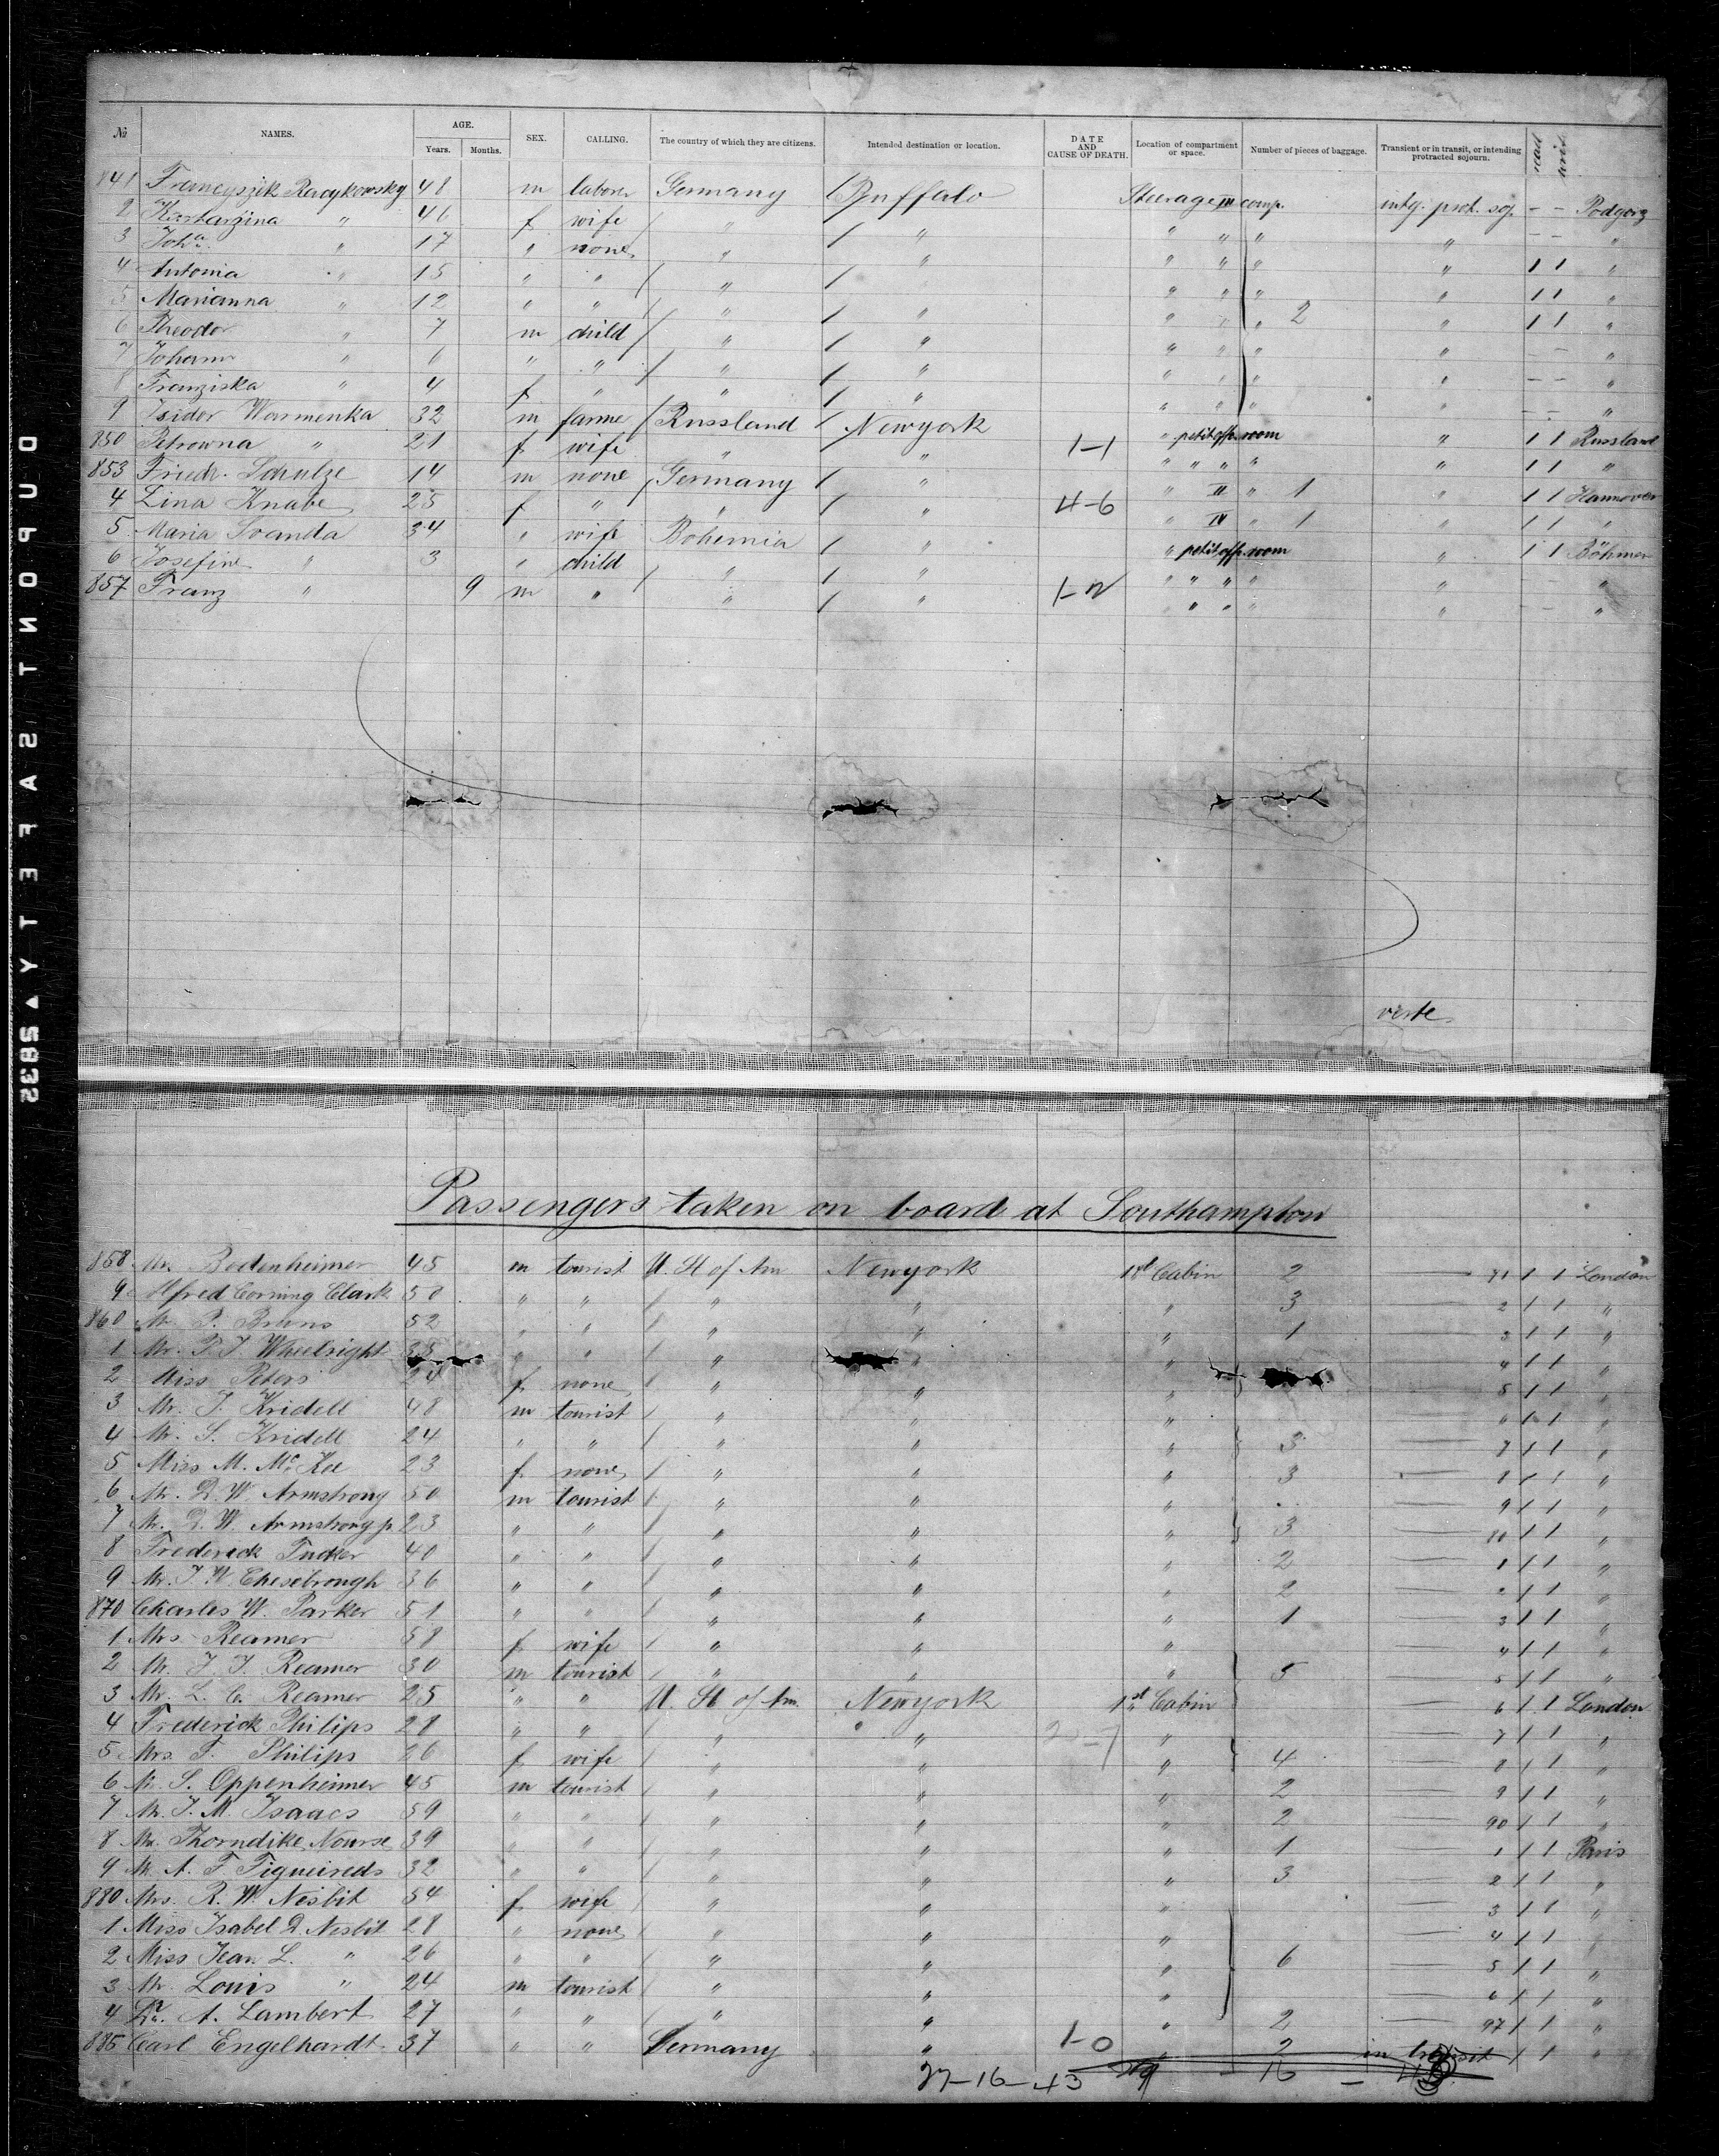 № NAMES. AGE. Years. Months. SEX. CALLING. The country of which they are citizens. Intended destination or location. DATE AND CAUSE OF DEATH. Location of compartment or space. Number of pieces of baggage. Transient or in transit, or intending protracted sojourn. read write
841 Francyszik Racykowsky 48 m labore Germany / Buffalo Steerage III comp. intg. prot. soj. – – Podgorz
2 Kartarzina " 46 f wife / " / " " " " " – – "
3 Joha. " 17 " none " / " " " " " 1 1 "
4 Antonia " 15 " " / " / " " " " " 1 1 "
5 Marianna " 12 " " / " / " " " " 2 " 1 1 "
6 Theodor " 7 m child / " / " " " " " – – "
7 Johann " 6 " " / " / " " " " " – – "
8 Franziska " 4 f " " / " " " " " – – "
9 Isidor Warmenka 32 m farme / Russland / Newyork " petit off. room " 1 1 Russland
850 Petrowna " 21 f wife " / " 1–1 " " " " " 1 1 "
853 Friedr. Schulze 14 m none / Germany / " " II " 1 " 1 1 Hannover
4 Lina Knabe 25 f " " / " 4–6 " IV " 1 " 1 1 "
5 Maria Svanda 34 " wife Bohemia / " " petit off. room " 1 1 Böhmen
6 Josefine " 3 " child / " / " " " " " " – – "
857 Franz " 9 m " " / " 1–2 " " " " – – "
verte
Passengers taken on board at Southampton
858 Mr. Bodenheimer 45 m tourist U. St of Am Newyork 1st Cabin 2 — 71 / 1 London
9 Alfred Corning Clark 50 " " / " " " 3 — 2 / 1 "
860 Mr. P. Bruns 52 " " / " " " 1 — 3 / 1 "
1 Mr. P. J. Wheelright " " / " " — 4 / 1 "
2 Miss Peters 24 f none / " " " — 5 / 1 "
3 Mr. J. Kridell 48 m tourist / " " " — 6 / 1 "
4 Mr. S. Kridell 24 " " / " " " 3 — 7 / 1 "
5 Miss M. McKee 23 f none / " " " 3 — 8 / 1 "
6 Mr. D. W. Armstrong 50 m tourist / " " " — 9 / 1 "
7 Mr. D. W. Armstrong jr 23 " " / " " " 3 — 80 / 1 "
8 Frederick Tucker 40 " " / " " " 2 — 1 / 1 "
9 Mr. J. W. Chesebrough 36 " " / " " " 2 — 2 / 1 "
870 Charles W. Parker 51 " " / " " " 1 — 3 / 1 "
1 Mrs Reamer 58 f wife / " " " — 4 / 1 "
2 Mr. J. J. Reamer 30 m tourist / " " " 5 — 5 / 1 "
3 Mr. L. C. Reamer 25 " " U. St of Am. Newyork 1st Cabin — 6 / 1 London
4 Frederick Philips 28 " " / " " 2–7 " — 7 / 1 "
5 Mrs. F. Philips 26 f wife / " " " 4 — 8 / 1 "
6 Mr. S. Oppenheimer 45 m tourist / " " " 2 — 9 / 1 "
7 Mr. J. M. Isaacs 59 " " / " " " 2 — 90 / 1 "
8 Mr. Thorndike Nourse 39 " " / " " " 1 — 1 / 1 Paris
9 Mr. A. F. Figueiredo 32 " " / " " " 3 — 2 / 1 "
880 Mrs. R. W. Nesbit 54 f wife / " " " — 3 / 1 "
1 Miss Isabel D. Nesbit 28 " none / " " " — 4 / 1 "
2 Miss Jean L. " 26 " " / " " " 6 — 5 / 1 "
3 Mr. Louis " 24 m tourist / " " " — 6 / 1 "
4 Dr. A. Lambert 27 " " / " " " 2 — 97 / 1 "
885 Carl Engelhardt 37 " " Germany " 1–0 " 2 in transit / 1 "
27–16–43 – 16 –
SAFETY ▲ 5832
DUPONT